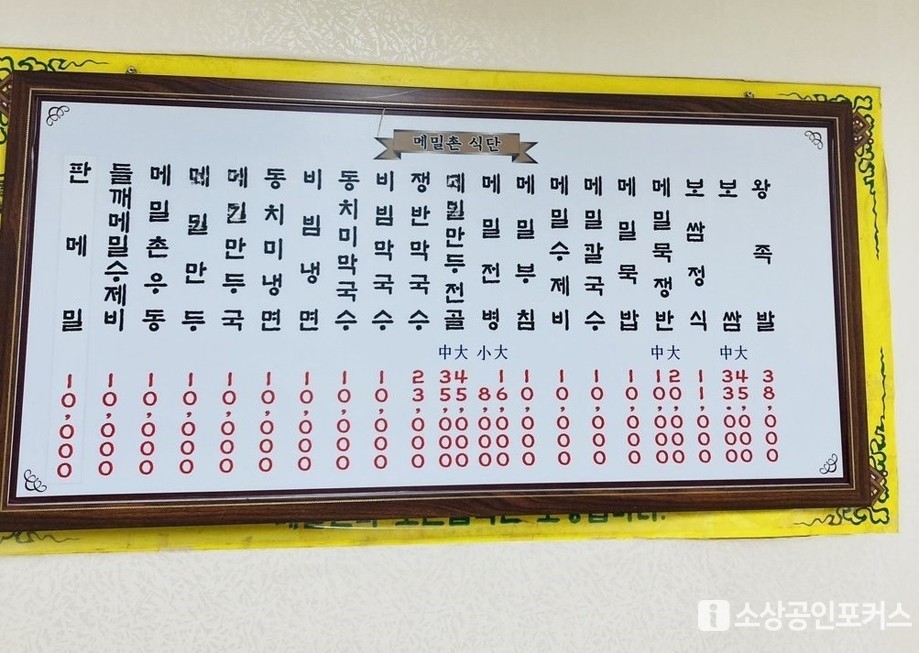 메밀촌 식단
왕족발 38,000
보쌈 中 33,000 大 45,000
보쌈정식 11,000
메밀묵쟁반 中 10,000 大 20,000
메밀묵밥 10,000
메밀칼국수 10,000
메밀수제비 10,000
메밀부침 10,000
메밀전병 小 8,000 大 16,000
메밀만두전골 中 35,000 大 45,000
쟁반막국수 23,000
비빔막국수 10,000
동치미막국수 10,000
비빔냉면 10,000
동치미냉면 10,000
메밀만둣국 10,000
메밀만두 10,000
메밀촌우동 10,000
들깨메밀수제비 10,000
판메밀 10,000
소상공인포커스